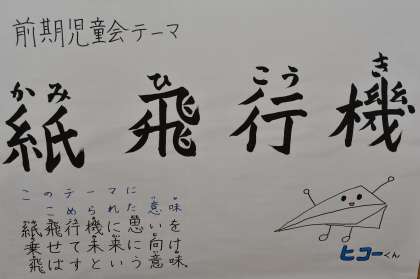 前期児童会テーマ
かみ ひ こう き
紙飛行機
このテーマに
こめられた意味
紙飛行機に思いを
乗せて未来に向け
飛ばすという意味
ヒコーくん